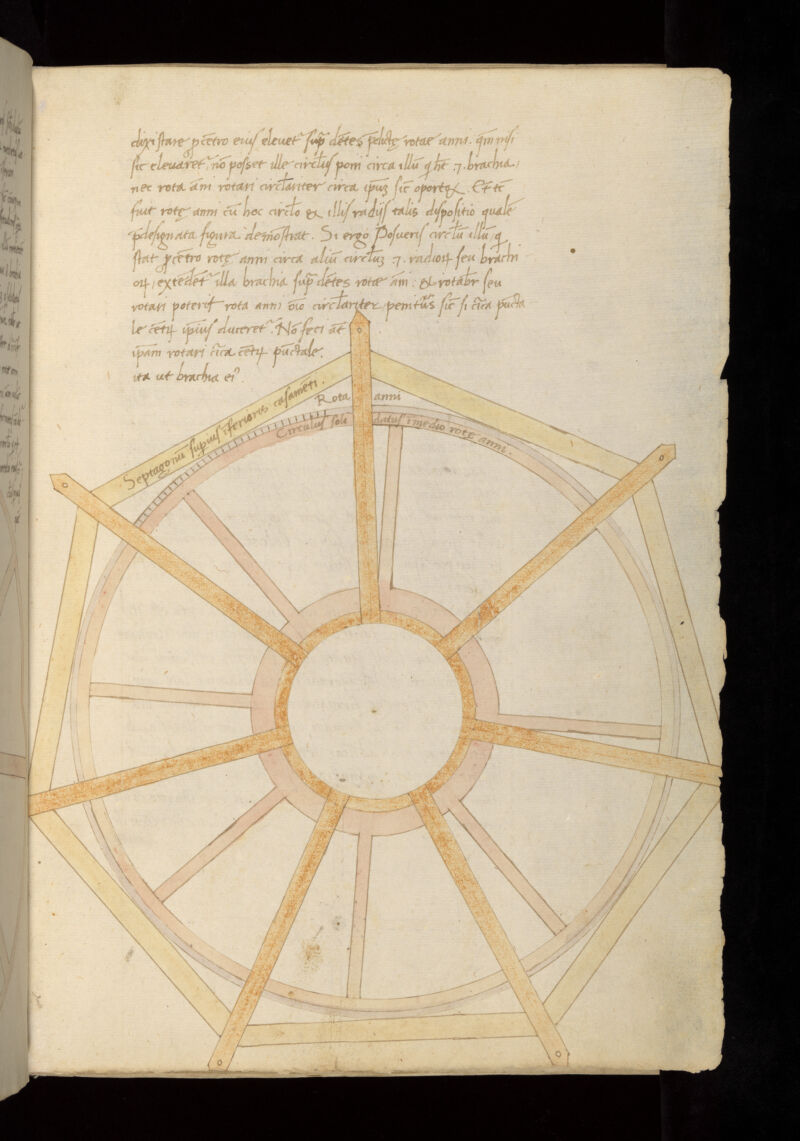 dixi stare p̲ cẽtro eius eleuet᷑ sup̲ dẽtes p̲dictę rotae anni. qm̃ nisi
sic eleuaret᷑, nõ posset ille circl̃us poni circa illũ q̃ hẽt .7. brachia,
nec rota ãni rotari circl̃ariter circa ip̃uȝ sic oporteȝ. Et tẽ
fuit rotę anni cũ hoc circl̃o & illis radijs talis dispositio qualẽ
p̃designata figura demõstrat. Si ergo posueris circl̃ũ illũ q̃
stat p̲ cẽtro rotę anni circa aliũ circl̃uȝ .7. radioꝝ seu brachi
oꝝ, extẽdẽt᷑ illa brachia sup̲ dẽtes rotae ãni: & rotabr̃ seu
rotari poterit rota anni oĩo circl̃ariter penit᷒ sic si circa pũcta
le cẽtꝝ ipsius duceret᷑. Nõ feci aũt
ip̃am rotari circa cẽtꝝ pũctale.
ita ut brachia ei᷒
Rota anni
Septagonũ superius ĩferioris casamẽti.
Circulus soli datus ĩ medio rotę anni.